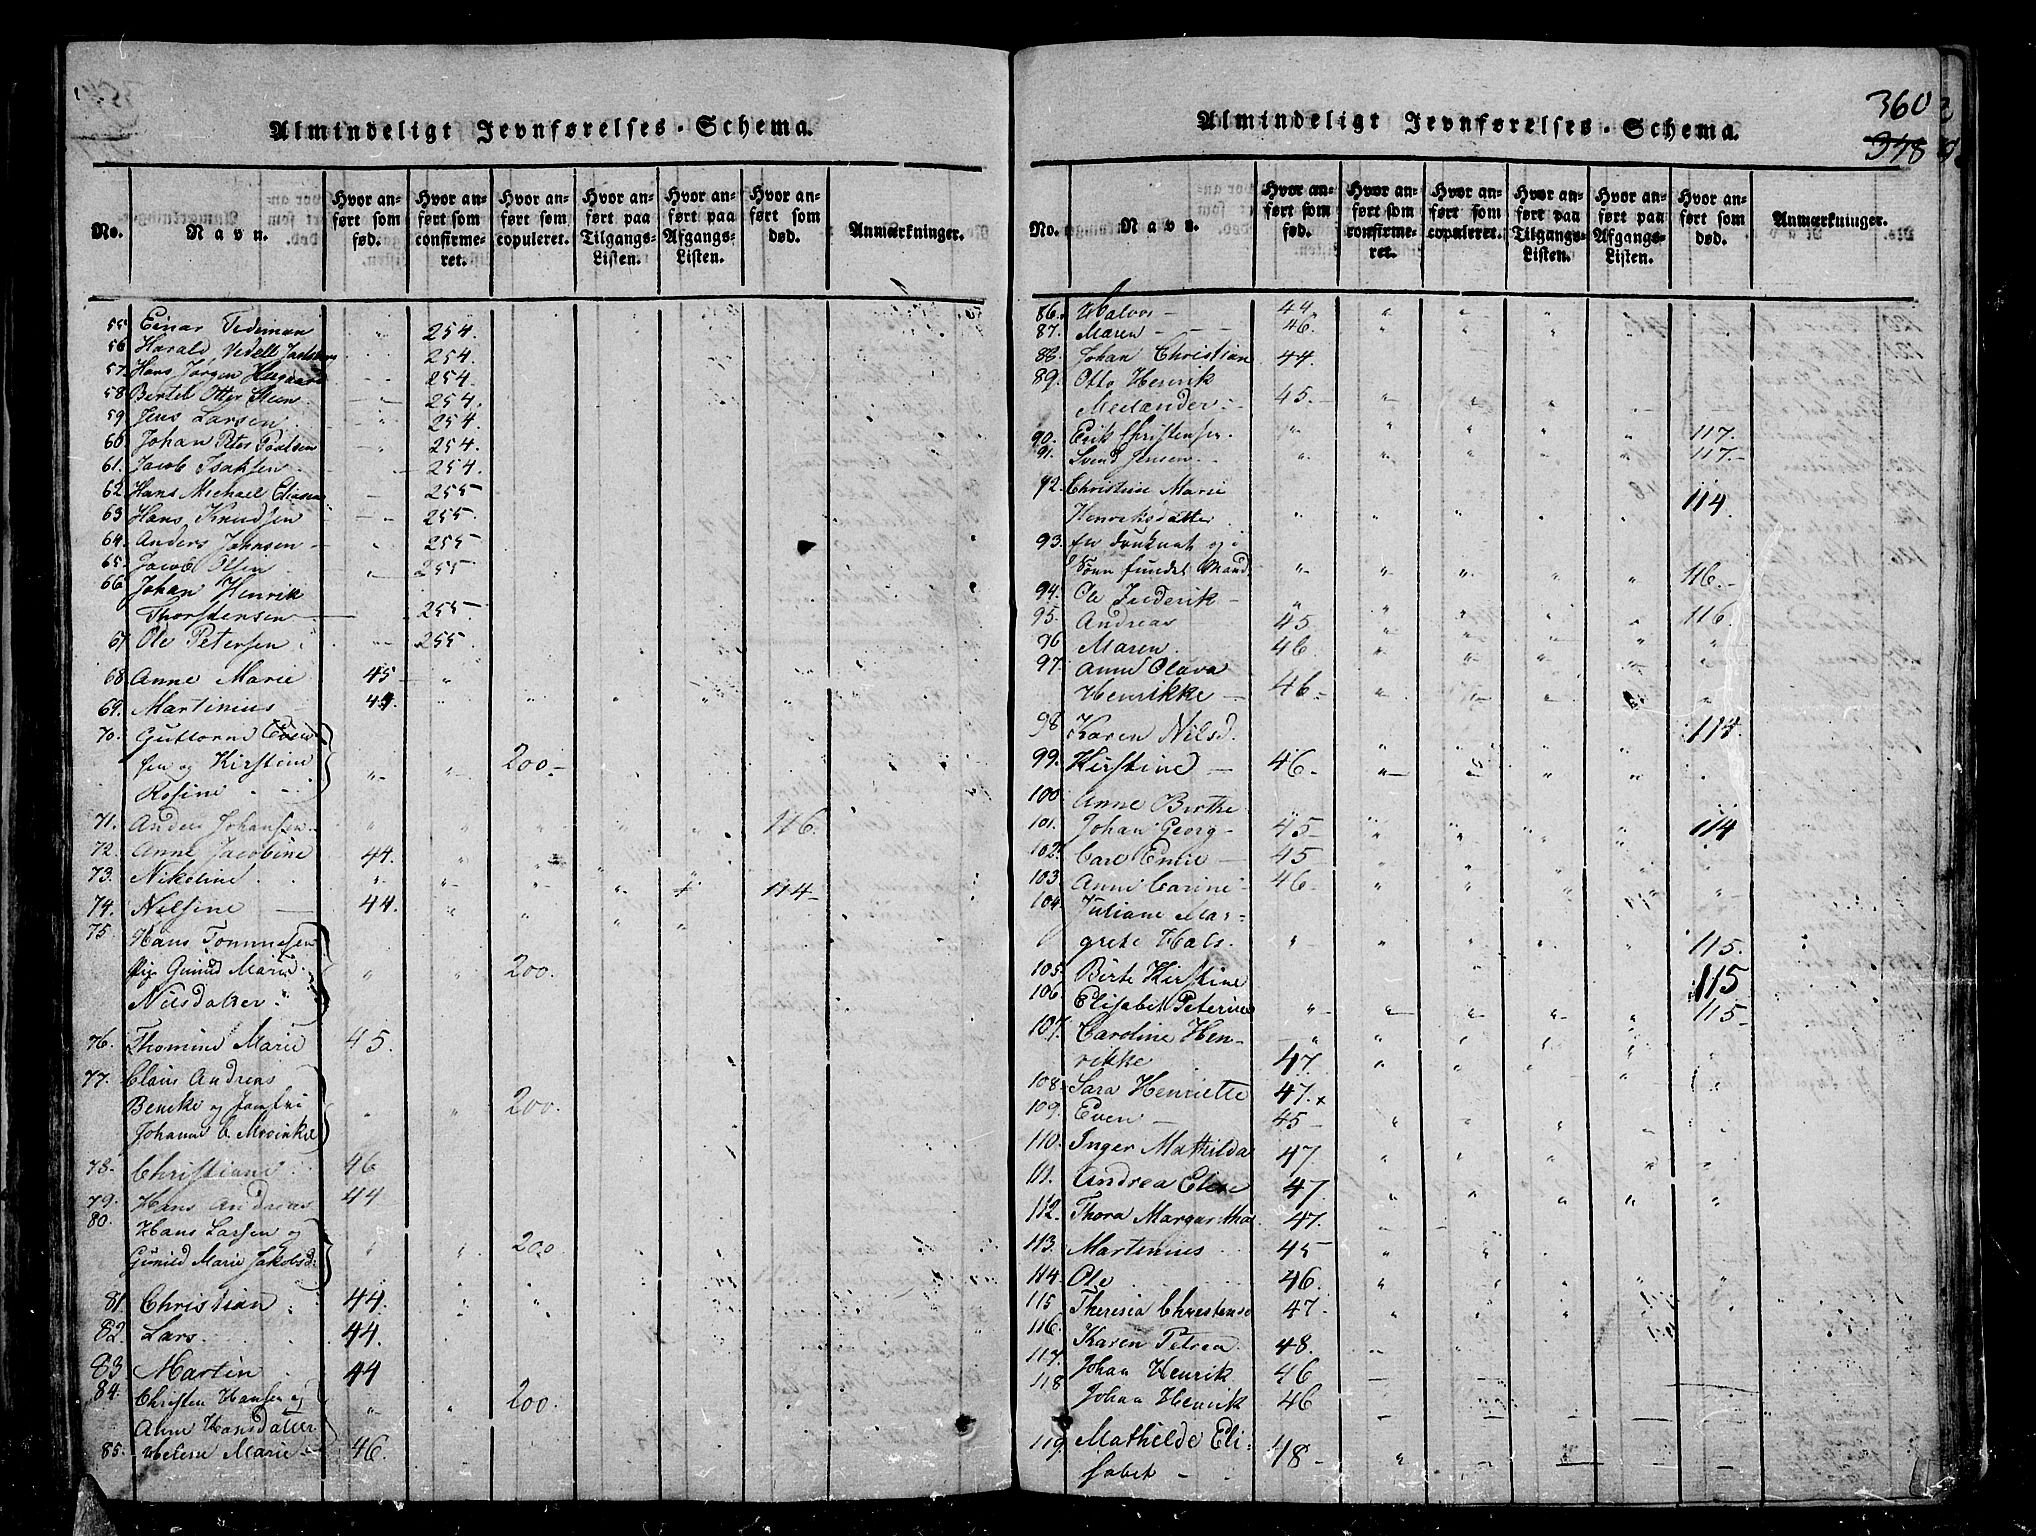 Almindeligt Jevnførelses-Schema.
No. Navn. Hvor anført som fød. Hvor anført som confirmeret. Hvor anført som copuleret. Hvor anført paa Tilgangs-Listen. Hvor anført paa Afgangs-Listen. Hvor anført som død. Anmærkninger.
55 Einar Tideman 254.
56 Harald Vedell 254.
57. Hans Jørgen 254.
58. Bertel Otter Steen 254.
59 Jens Larsen 254.
60 Johan Peter Paulsen 254.
61. Jacob Isaksen 254.
62. Hans Michael Eliasen 255
63 Hans Knudsen 255.
64. Anders Johnsen 255
65. Jacob Olsen 255
66 Johan Henrik
Thorstensen 255
67 Ole Petersen 255
68. Anne Marie 45
69. Martinius 44.
70. Guttorm Even
sen og Kirstine 200.
Rosine
71. Anders Johansen 116.
72. Anne Jacobine 44.
73. Nikoline 114
74. Nilsine 44.
75. Hans Tommesen
Pige Gunild Marie 200.
Nilsdatter
76. Thomine Marie 45.
77. Claus Andreas
Beneke og Jomfru 200.
Johanne C.
78. Christiane 46
79. Hans Andreas 44
80. Hans Larsen og
Gunild Marie Jakobsd: 200
81. Christian 44.
82. Lars 44.
83. Martin 44
84. Christen Hansen og 200.
Anne Hansdatter
85. Helene Marie 46.
360
378
Almindeligt Jevnførelses-Schema.
No. Navn. Hvor anført som fød. Hvor anført som confirmeret. Hvor anført som copuleret. Hvor anført paa Tilgangs-Listen. Hvor anført paa Afgangs-Listen. Hvor anført som død. Anmærkninger.
86. Halvor 44
87. Maren 46.
88. Johan Christian 44
89. Otto Henrik
Meilænder 45.
90. Erik Christensen 117.
91. Svend Jensen 117.
92. Christine Marie
Henriksdatter 114.
93. En druknet og i
Søen fundet Mand 116.
94. Ole Frederik 116.
95. Andreas 45
96 Maren 46.
97. Anne Olava
Henrikke 46
98 Karen Nilsd. 114
99. Kirstine 46
100. Anne Birthe 114
101. Johan Georg 45
102. Carl Emil 45
103 Anne Carine 46
104. Juliane Mar-
grete Hals 115.
105. Birte Kirstine 115
106. Elisabet Peterine 115
107. Caroline Hen-
rikke 47.
108. Sara Henriette 47.
109. Even 45
110. Inger Mathilda 47
111. Andrea Eline 47
112. Thora Margaretha 47.
113. Martinius 45
114. Ole 46.
115 Theresia 47
116. Karen Petrea 48.
117. Johan Henrik 46
118 Johan Henrik 46
119. Mathilde Eli-
sabet 48